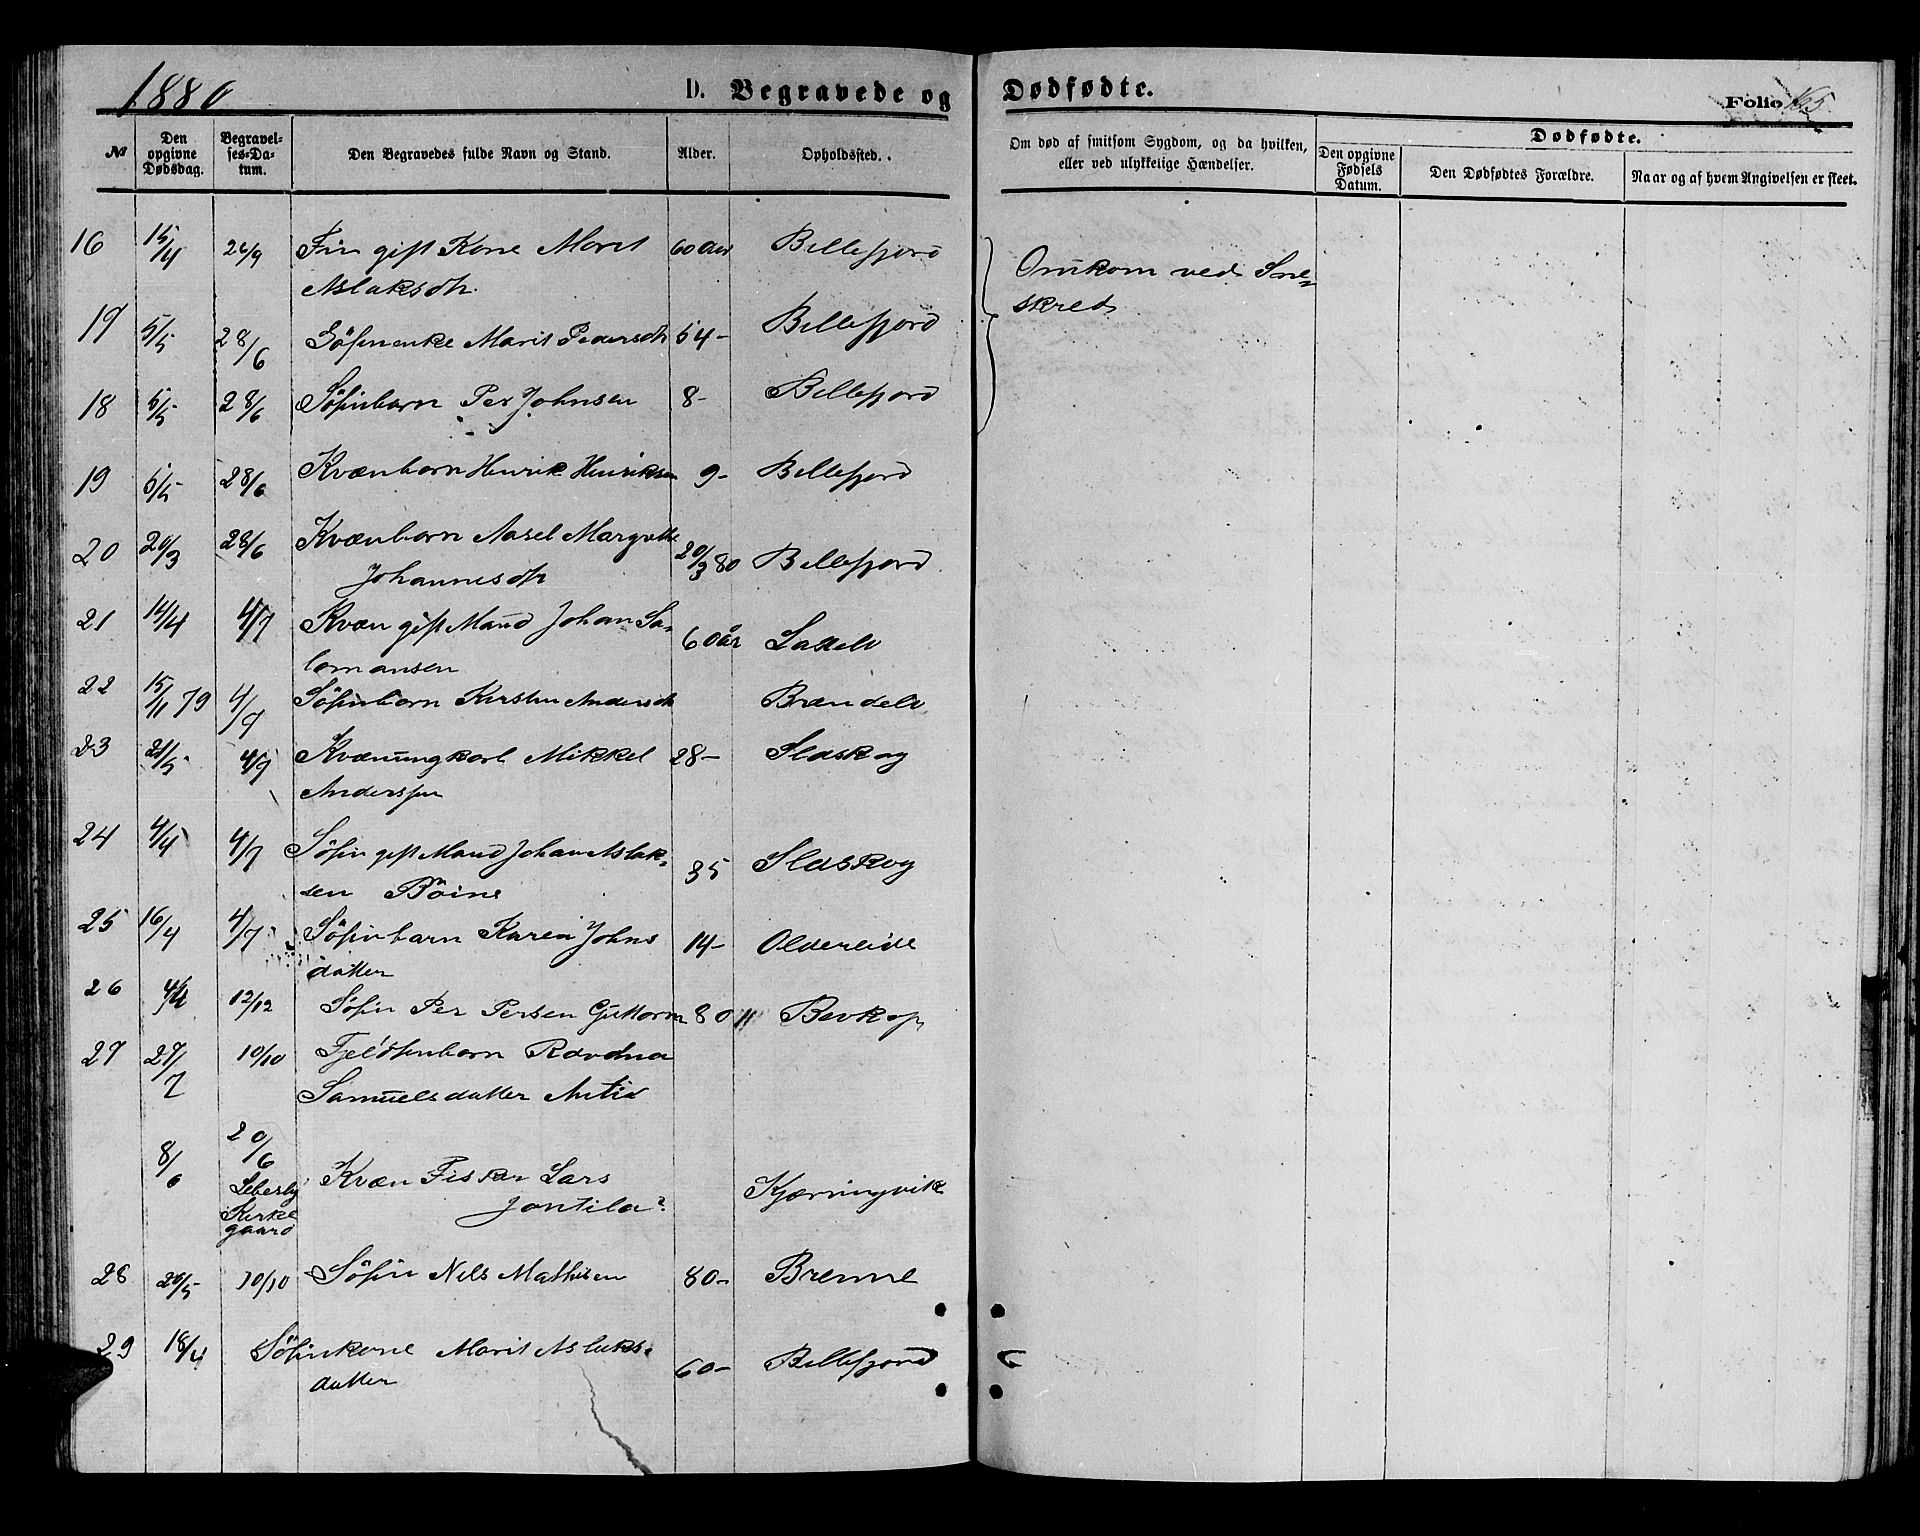 1880
D. Begravede og Dødfødte.
Folio 165.
№
Den opgivne Dødsdag.
Begravelses-Datum.
Den Begravedes fulde Navn og Stand.
Alder.
Opholdssted.
Om død af smitsom Sygdom, og da hvilken, eller ved ulykkelige Hændelser.
Dødfødte.
Den opgivne Fødsels Datum.
Den Dødfødtes Forældre.
Naar og af hvem Angivelsen er skeet.
16 15/4 26/9 Fin gift Kone Marit 60 Aar Billefjord
Aslaksdtr.
Omkom ved Sne-
skred
17 5/5 28/6 Söfinenke Marit Pedersdtr 54- Billefjord
18 5/5 28/6 Söfinbarn Per Johnsen 8- Billefjord
19 5/5 28/6 Kvænbarn Henrik Henriksen 9- Billefjord
20 20/3 28/6 Kvænbarn Aasel Margrethe 20/3 80 Billefjord
Johannesdtr
21 14/4 4/7 Kvæn gift Mand Johan Sa- 60 år Laxelv
lomansen
22 15/11 79 4/7 Söfinbarn Kirsten Andersdtr Brændelv
23 21/5 4/7 Kvænungkarl Mikkel 28- Sldskog
Anderssen
24 4/4 4/7 Söfin gift Mand Johan Aslak- 35 Sldskog
sen Böine
25 16/4 4/7 Söfinbarn Karen Johns 14- Oldereide
datter
26 12/12 Söfin Per Persen Guttorm 80 " Bevkop
27 27/7 10/10 Fjeldfinbarn Ravdna
Samuelsdatter
8/6 20/6 Kvæn Fisker Lars Kjærringvik
Lebesby
Kirke
gaard
Jontila?
28 20/5 10/10 Söfin Nils Mathisen 80- Brenne
29 18/4 Söfinkone Marit Aslaks- 60- Billefjord
datter